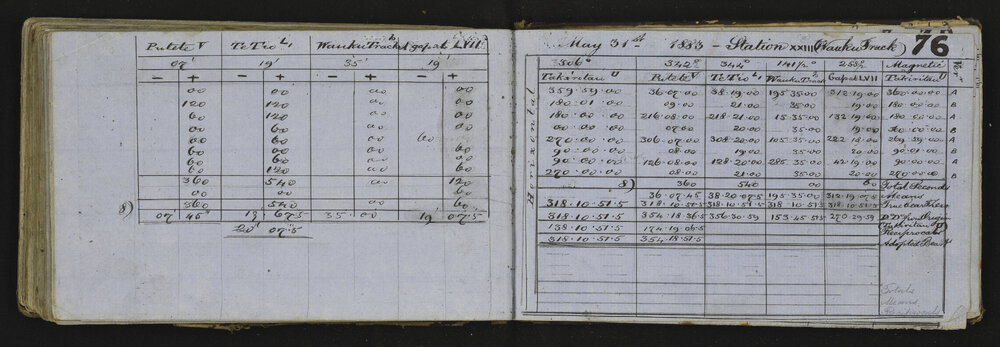 Putete V TeTio L, Wauku Track gapat LVII
07' 19' 35' 19'
- + - + - + - +
00 00 00 00
120 120 00 00
60 120 00 00
00 60 00 00
60 60 00 60
60 00 00 60
60 60 00 00
00 120 00 60
360 540 00 120
00 00 00 60
8) 360 540 00 60
07 45" 19 67.5 35.00 19 07.5
20' 07.5
May 31st 1883 - Station XXIII (Wauku Track) 76
306° 342° 344° 141½° 258½ Magnetic Ver
Horizontal
Takiritau U Putete V TeTio L, Wauku Track Gapat LVII Takiritau U
359.59.00 36.07.00 38.19.00 195 35.00 312.19.00 360.00.00 A
180.01.00 09.00 21.00 35.00 19.00 180.00.00 B
180.00.00 216.08.00 218.21.00 15.35.00 132.19.00 180.00.00 A
00.00.00 07.00 20.00 35.00 19.00 360.00.00 B
270.00.00 306.07.00 308.20.00 105.35.00 222.18.00 269.59.00 A
90.00.00 08.00 19.00 35.00 20.00 90.01.00 B
90.00.00 126.08.00 128.20.00 285.35.00 42.19.00 90.00.00 A
270.00.00 08.00 21.00 35.00 20.00 270.00.00 B
8) 360 540 00 60 Total Seconds
36.07.45 38.20.07.5 195.35.00 312.19.07.5 Means
318.10.51.5 318.10.51.5 318.10.51.5 318.10.51.5 318.10.51.5
318.10.51.5 354.18.36.5 356.30.59 153.45.51.5 270.29.59
138.10.51.5 174.19.06.5 Reciprocal
318.10.51.5 354.18.51.5 Adopted
Totals
Means